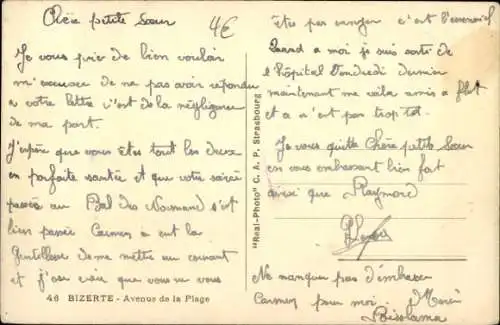 Chère petite sœur
4€
Je vous prie de bien vouloir
m'excuser de ne pas avoir répondu
a votre lettre c'est de la négligence
de ma part.
J'espère que vous êtes tout les deux
en parfaite santée et que votre soirée
passée au Bal des Normand s'est
bien passée Carmen a eut la
Gentillesse de me mettre au courant
et j'ose croir que vous ne vous
46 BIZERTE - Avenue de la Plage
"Real-Photo" C. A. P. Strasbourg
êtes pas ennuyer c'est l'essensiel
Quand a moi je suis sorti de
l'hôpital Vendredi dernier
maintenant me voila remis a flot
et a n'est pas trop tot.
Je vous quitte Chère petite Sœur
en vous embrassant bien fort
ainsi que Raymond
Ne manquer pas d'embrasser
Carmen pour moi. Merci